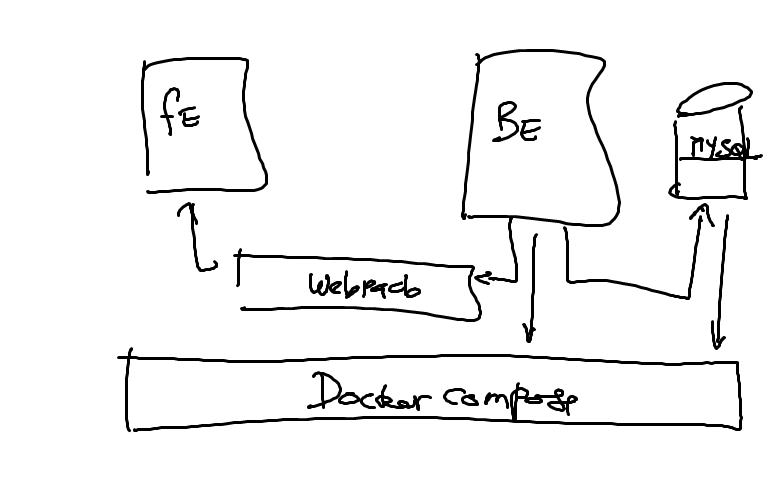 FE
BE
mysql
Webpack
Docker compose